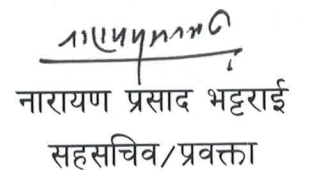 नारायण प्रसाद भट्टराई
सहसचिव/प्रवक्ता